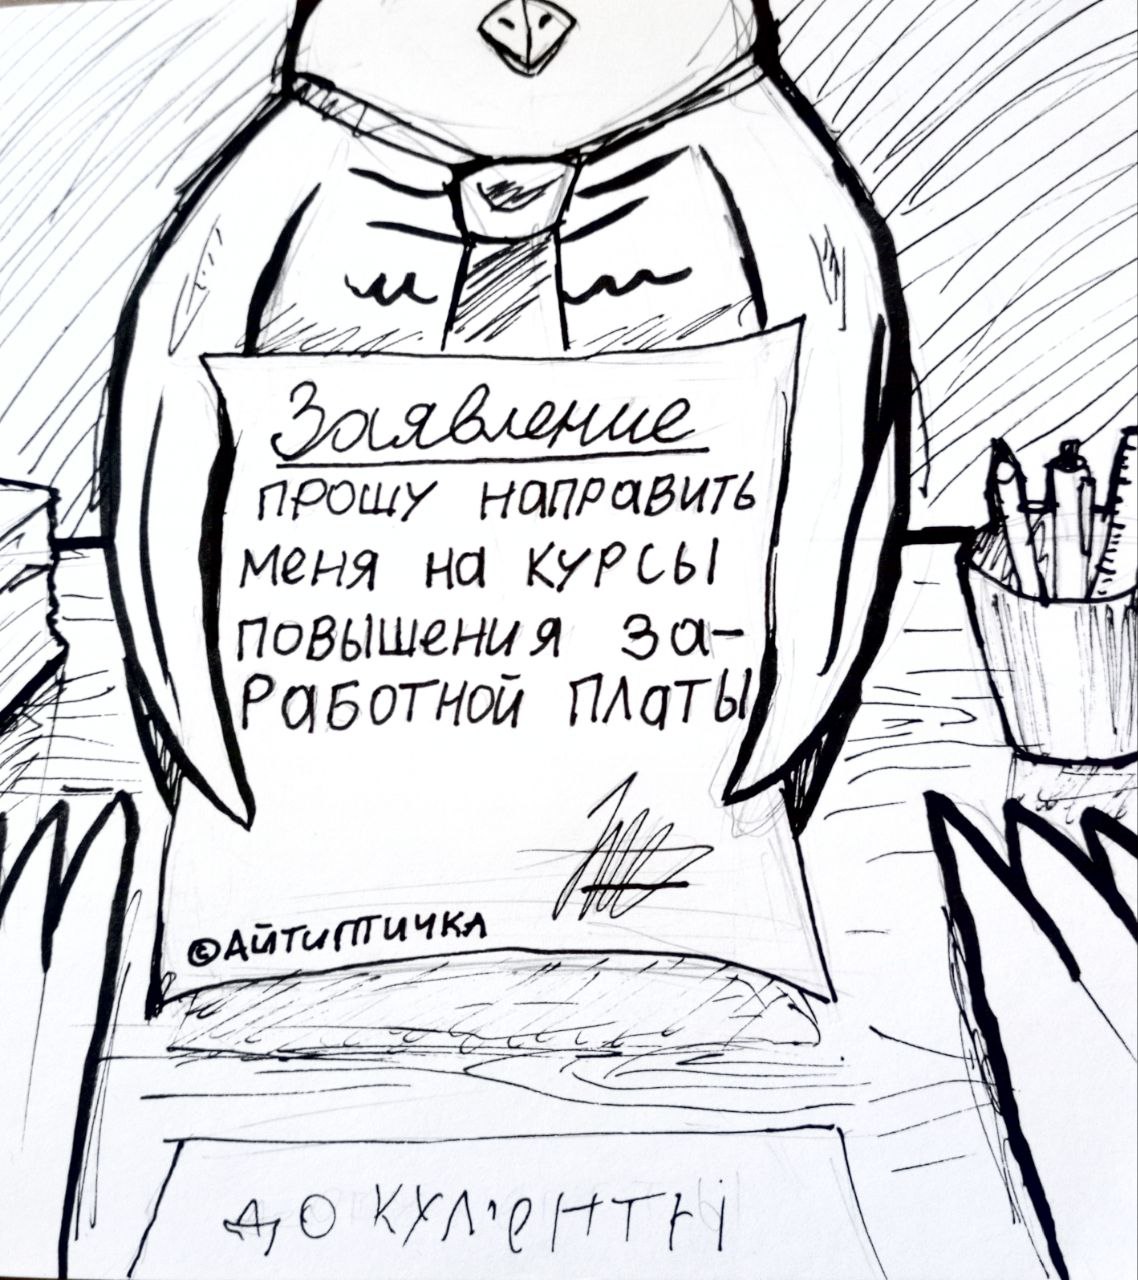 Заявление
прошу направить
меня на курсы
повышения за-
работной платы
©АЙТИПТИЧКА
ДОКУМЕНТЫ